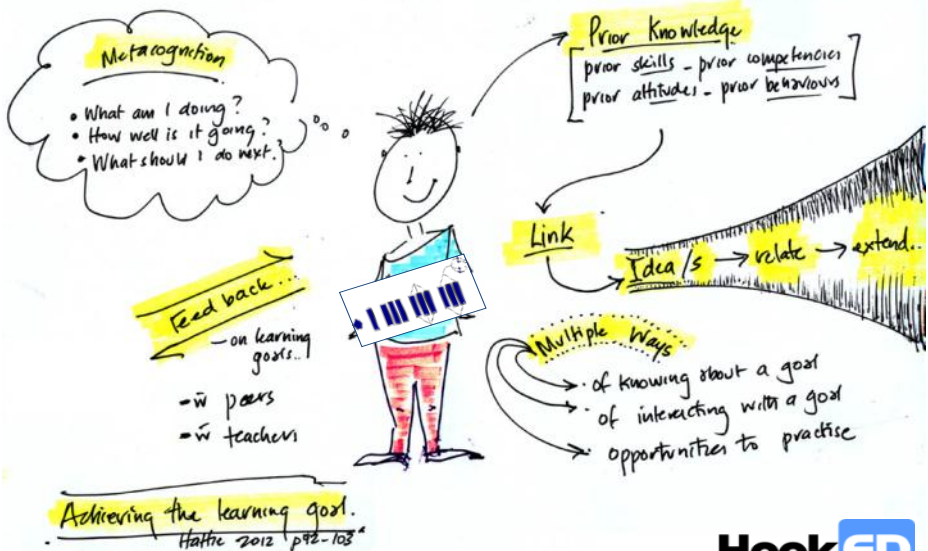 Metacognition
• What am I doing?
• How well is it going?
• What should I do next?
Prior Knowledge
[prior skills - prior competencies
prior attitudes - prior behaviours]
Link
Idea/s → relate → extend...
Feed back...
- on learning
goals..
- w̄ peers
- w̄ teachers
Multiple Ways
· of knowing about a goal
· of interacting with a goal
· opportunities to practise
Achieving the learning goal.
Hattie 2012 p92-103
HookED